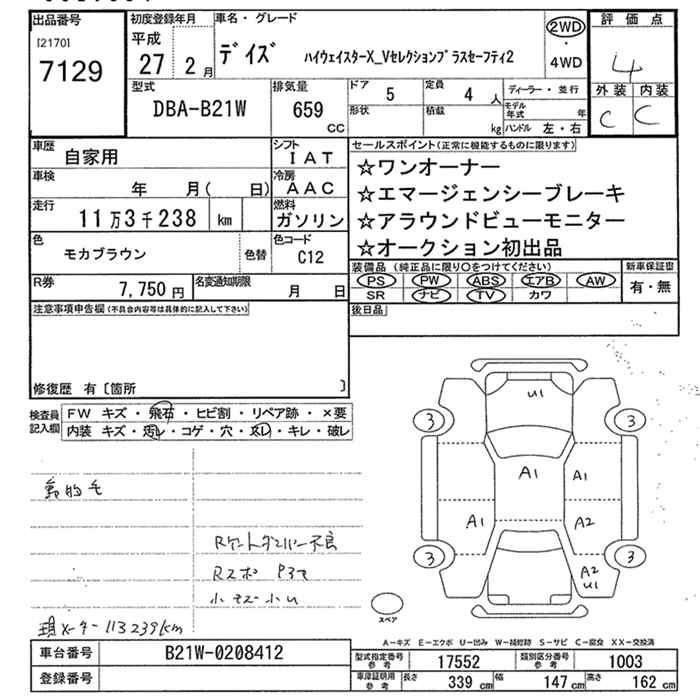 出品番号
[2170]
7129
初度登録年月
平成
27 2月
車名・グレード
デイズ ハイウェイスターX_Vセレクションプラスセーフティ2
2WD
・
4WD
評価点
4
外装 内装
C C
型式
DBA-B21W
排気量
659
cc
ドア 5
定員 4 人
形状
積載 kg
ディーラー・並行
モデル年式 年
ハンドル 左・右
車歴 自家用
シフト
IAT
車検 年 月( 日)
冷房
AAC
走行 11万3千238 km
燃料
ガソリン
色 モカブラウン 色替
色コード
C12
R券 7,750円
名変通知期限 月 日
セールスポイント(正常に機能するものに限ります)
☆ワンオーナー
☆エマージェンシーブレーキ
☆アラウンドビューモニター
☆オークション初出品
装備品 (純正品に限り○をつけてください)
PS PW ABS エアB AW
SR ナビ TV カワ
新車保証書
有・無
後日品
注意事項申告欄(不具合内容等は具体的に記入して下さい)
修復歴 有〔箇所 〕
検査員記入欄
FW キズ・飛石・ヒビ割・リペア跡・×要
内装 キズ・汚レ・コゲ・穴・スレ・キレ・破レ
動物毛
小キズ小凹
現メーター113239km
U1
3 3
A1 A1
A1 A2
3 3
A2
U1
スペア
A-キズ E-エクボ U-凹み W-補修跡 S-サビ C-腐食 XX-交換済
車台番号 B21W-0208412
登録番号
型式指定番号 参考 17552
類別区分番号 参考 1003
車庫証明用 参考 長さ 339 cm 幅 147 cm 高さ 162 cm